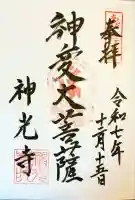 奉拝
令和七年
十二月十五日
神愛大菩薩
神光寺